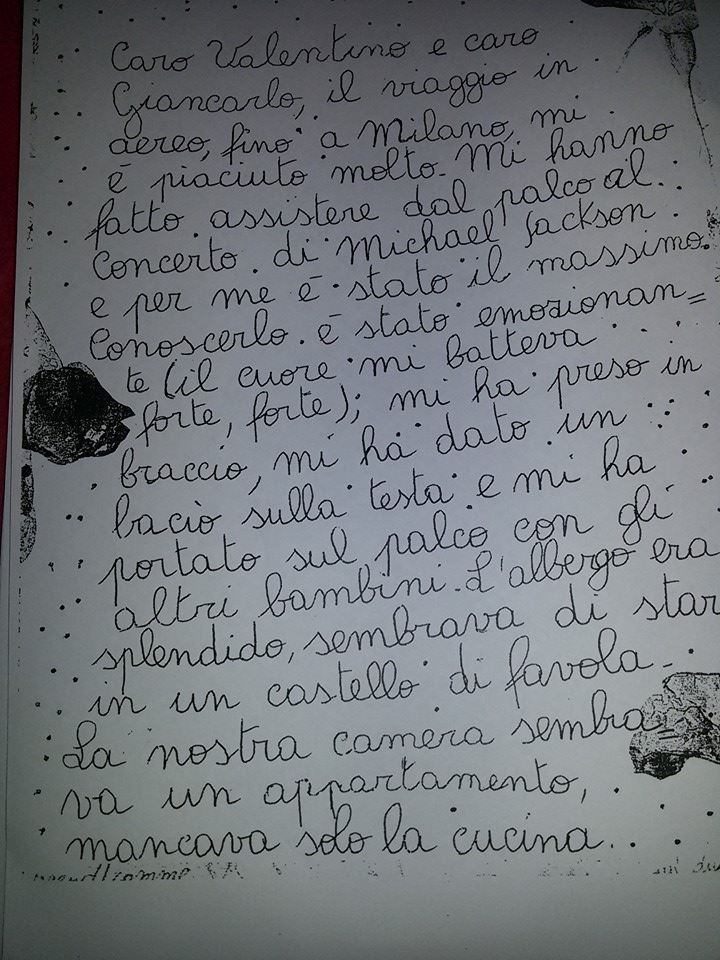 Caro Valentino e caro
Giancarlo, il viaggio in
aereo, fino a Milano, mi
è piaciuto molto. Mi hanno
fatto assistere dal palco al
Concerto di Michael Jackson
e per me è stato il massimo.
Conoscerlo è stato emozionan=
te (il cuore mi batteva
forte, forte); mi ha preso in
braccio, mi ha dato un
bacio sulla testa e mi ha
portato sul palco con gli
altri bambini. L'albergo era
splendido, sembrava di star
in un castello di favola.
La nostra camera sembra=
va un appartamento,
mancava solo la cucina.